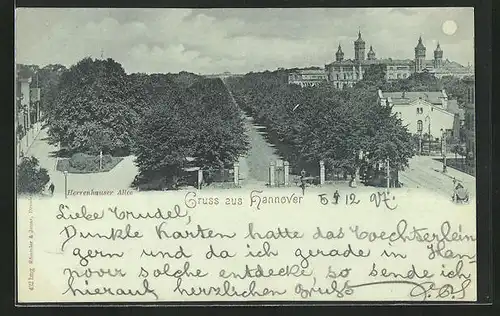 Herrenhauser Allee
Gruss aus Hannover
12 97.
Liebe Trudel,
Dunkle Karten hatte das Toechterlein
gern und da ich gerade in Han
nover solche entdecke, so sende ich
hierauf herzlichen Gruß